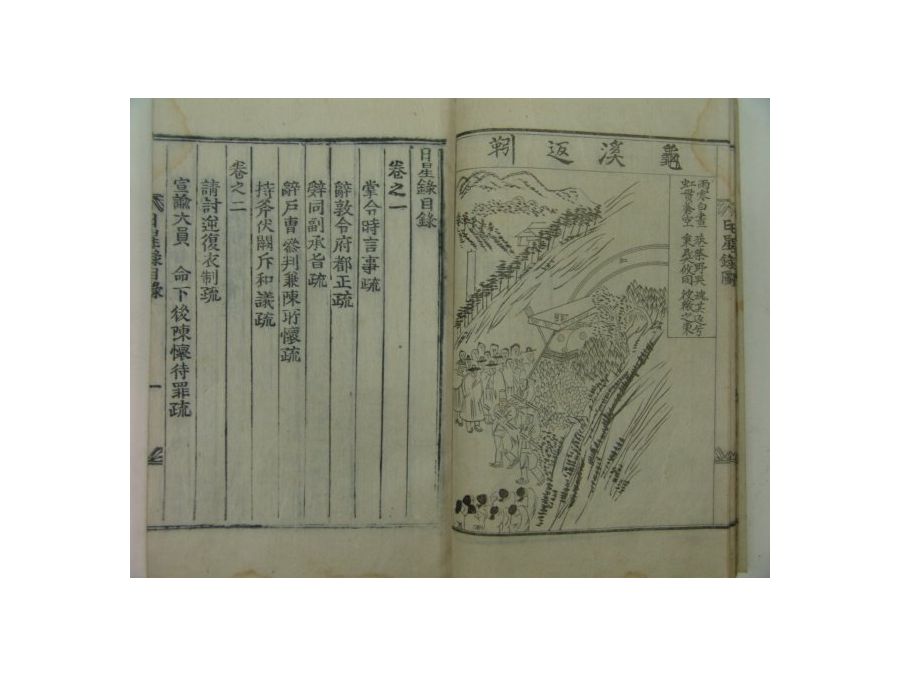 龜溪返靷
雨寒白晝 野哭 魂其返兮
虹貫 空 秉彝攸同 之東
日星錄圖
日星錄目錄
卷之一
掌令時言事疏
辭敦令府都正疏
辭同副承旨疏
辭戶曹叅判兼陳所懷疏
持斧伏闕斥和議疏
卷之二
請討逆復衣制疏
宣諭大員 命下後陳懷待罪疏
日星錄目錄 一